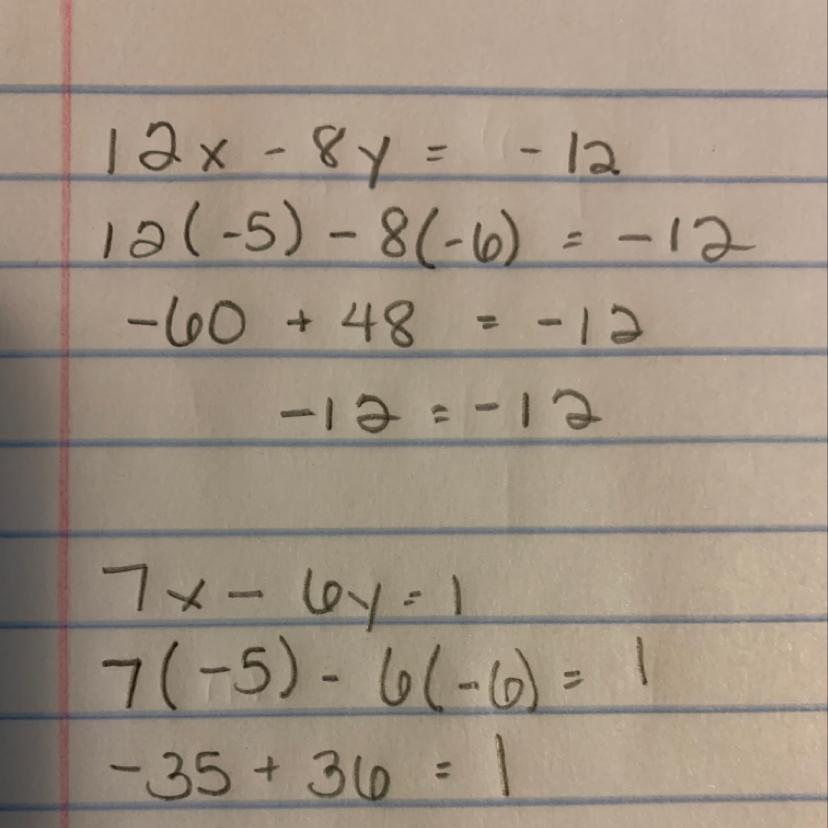 12x - 8y = -12
12(-5) - 8(-6) = -12
-60 + 48 = -12
-12 = -12
7x - 6y = 1
7(-5) - 6(-6) = 1
-35 + 36 = 1